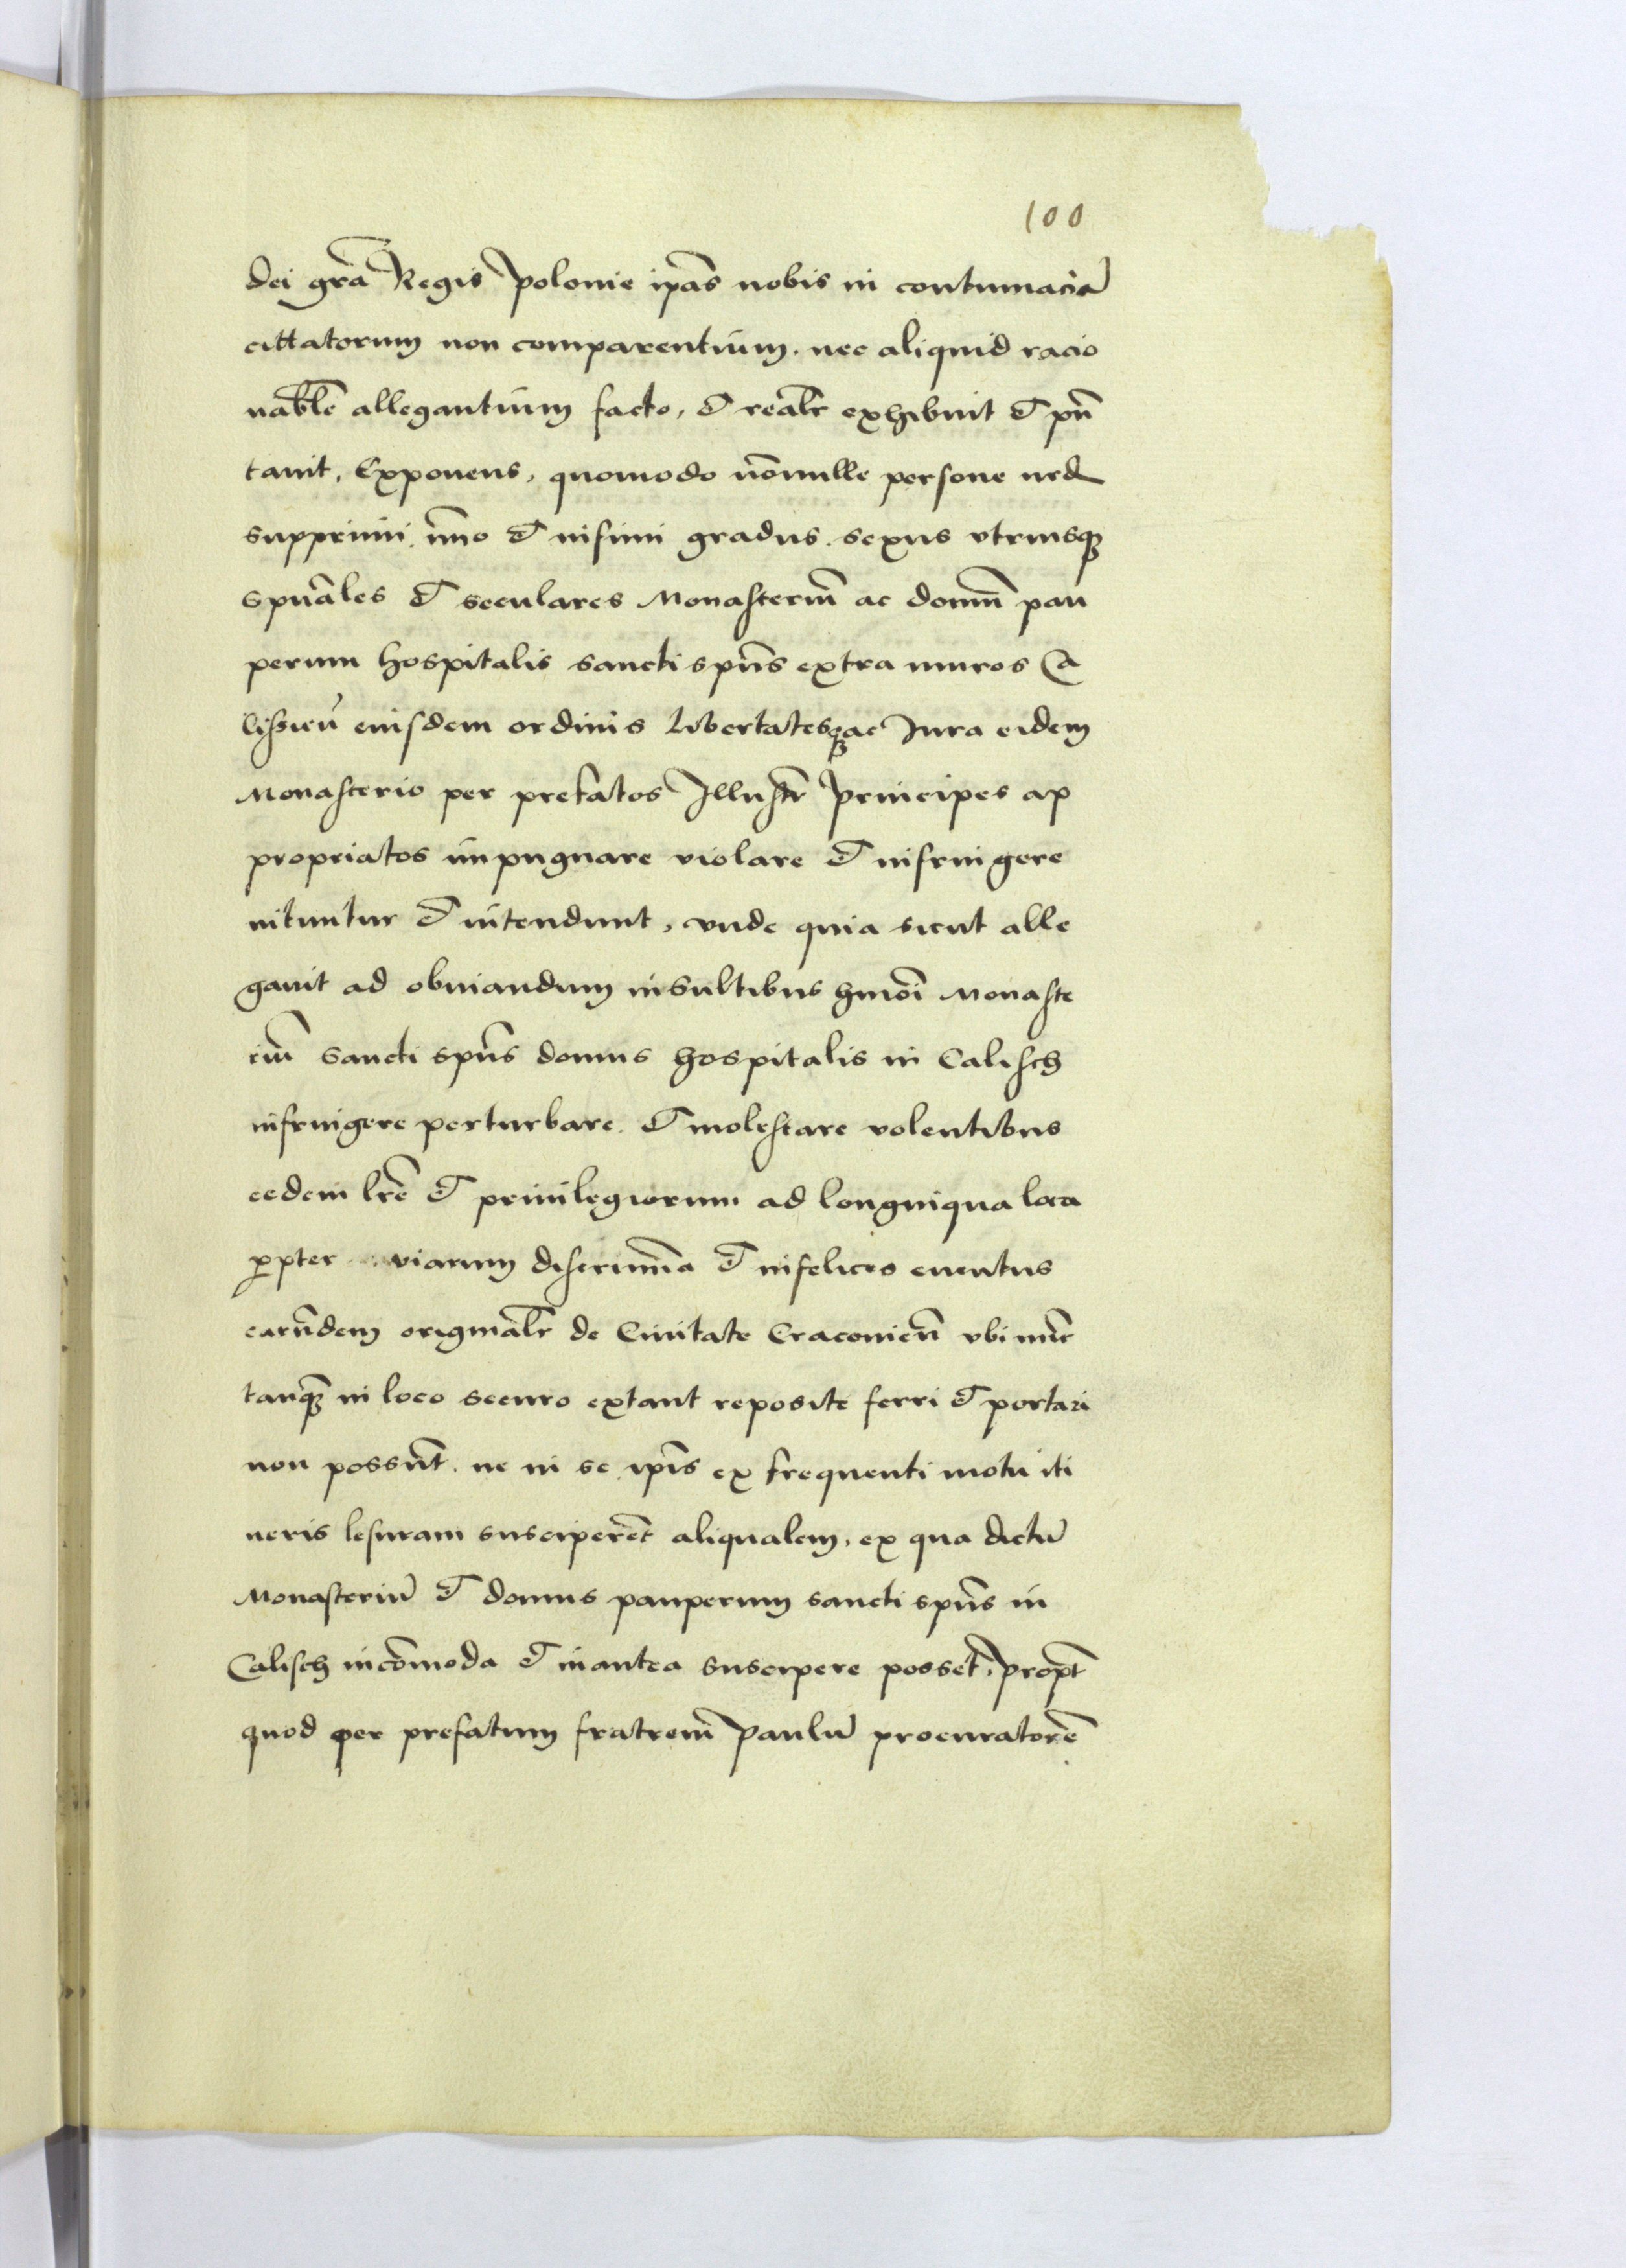 100
dei grã Regis Polonie ipãs nobis in contumaciã
cittatorum non comparentium. nec aliquid racio
nabłe allegantium facto, et realr exhibuit et pñ
tauit, Exponens, quomodo nõnulle persone
supprimi ĩmo et infimi gradus. sexus vtriusqꝫ
spũales et seculares Monasteriũ ac domũ pau
perum hospitalis sancti spũs extra muros Ca
lissieñ eiusdem ordinis Libertatesqꝫ ac Iura eidem
Monasterio per prefatos Illustr Principes ap
propriatos impugnare violare et infringere
nituntur et intendunt, vnde quia sicut alle
gauit ad obuiandum insultibus hmõi Monaste
riũ sancti spũs domus hospitalis in Calisch
infringere perturbare. et molestare volentibus
eedem lrẽ et priuilegiorum ad longniqua loca
ꝓpter viarum discrimĩa et infelices euentus
earũdem originalr de Ciuitate Cracouieñ vbi nũc
tanqꝫ in loco securo extant reposite ferri et portari
non possũt. ne in se ipĩs ex frequenti motu iti
neris lesuram susciperẽt aliqualem, ex qua dictũ
Monasteriũ et domus pauperum sancti spũs in
Calisch incõmoda et inantea suscipere possẽt, propt̃
quod per prefatum fratrem̃ Paulũ procuratorẽ